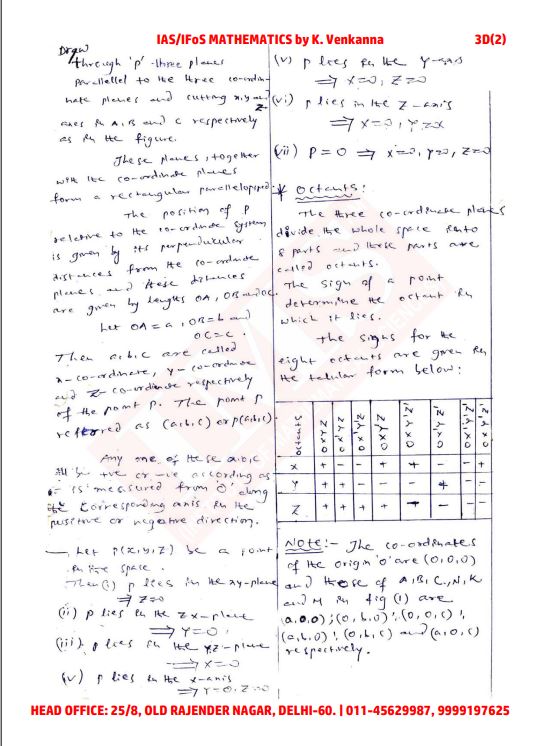 IAS/IFoS MATHEMATICS by K. Venkanna 3D(2)
Draw
through 'p' three planes
parallel to the three co-ordi-
nate planes and cutting x,y and
z-
axes in A, B and C respectively
as in the figure.
These planes, together
with the co-ordinate planes
form a rectangular parallelopiped.
The position of P
relative to the co-ordinate system
is given by its perpendicular
distances from the co-ordinate
planes and these distances
are given by lengths OA, OB and OC.
Let OA = a, OB = b and
OC = c.
Then a, b, c are called
x-co-ordinate, y-co-ordinate
and z-co-ordinate respectively
of the point P. The point P
referred as (a,b,c) or P(a,b,c).
Any one of these a,b,c
will be +ve or -ve according as
is measured from 'O' along
the corresponding axis in the
positive or negative direction.
Let P(x,y,z) be a point
in the space.
Then (i) P lies in the xy-plane
⇒ z=0
(ii) P lies in the zx-plane
⇒ y=0.
(iii) P lies in the yz-plane
⇒ x=0
(iv) P lies in the x-axis
⇒ y=0, z=0
(v) P lies in the y-axis
⇒ x=0, z=0
(vi) P lies in the z-axis
⇒ x=0, y=0
(vii) P=0 ⇒ x=0, y=0, z=0
* Octants:
The three co-ordinate planes
divide the whole space into
8 parts and these parts are
called octants.
The sign of a point
determine the octant in
which it lies.
The signs for the
eight octants are given in
the tabular form below:
octants OXYZ OX'YZ OX'Y'Z OXY'Z OXYZ' OX'YZ' OX'Y'Z' OXY'Z'
X + - - + + - - +
Y + + - - + + - -
Z + + + + - - - -
Note:- The co-ordinates
of the origin 'O' are (0,0,0)
and those of A, B, C, N, K
and M in fig (1) are
(a,0,0); (0,b,0); (0,0,c);
(a,b,0); (0,b,c) and (a,0,c)
respectively.
HEAD OFFICE: 25/8, OLD RAJENDER NAGAR, DELHI-60. | 011-45629987, 9999197625